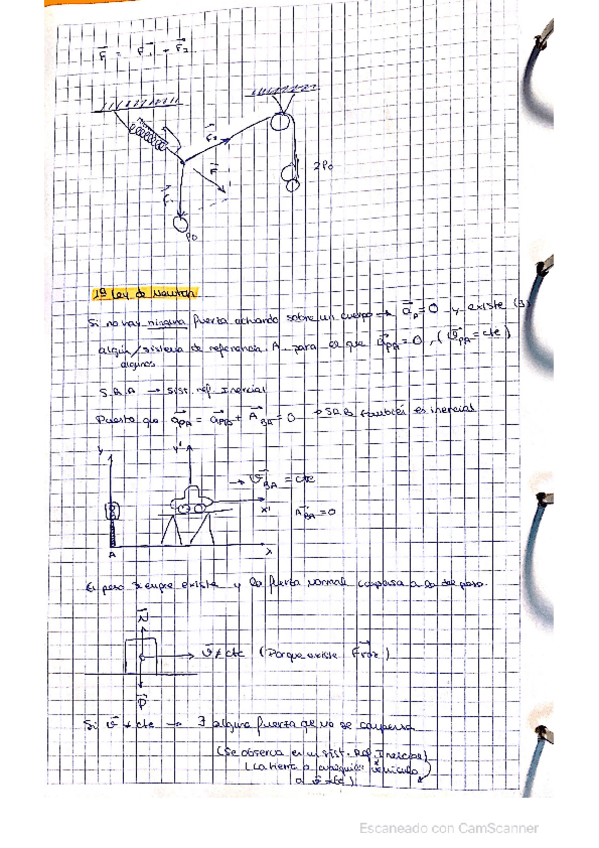 F⃗ = F⃗₁ + F⃗₂
F⃗₂
F⃗
F⃗₁
2P₀
P₀
1ª Ley de Newton
Si no hay ninguna fuerza actuando sobre un cuerpo → a⃗ₚ = 0 y existe (∃)
algún/sistema de referencia A para el que a⃗PA = 0, (v⃗PA = cte)
algunos
S.R.A → sist. ref. Inercial
Puesto que a⃗PA = a⃗PB + A⃗BA = 0 → SRB también es inercial
Y
Y'
→ v⃗BA = cte
X'
A⃗BA = 0
A
X
El peso siempre existe y la fuerza normal compensa a la del peso.
N⃗
v⃗ ≠ cte (Porque existe F⃗roz)
P⃗
Si v⃗ ≠ cte → ∃ alguna fuerza que no se compensa
(Se observa en un sist. Ref. Inercial)
(La tierra o cualquier vehículo
a v⃗ = cte)
Escaneado con CamScanner